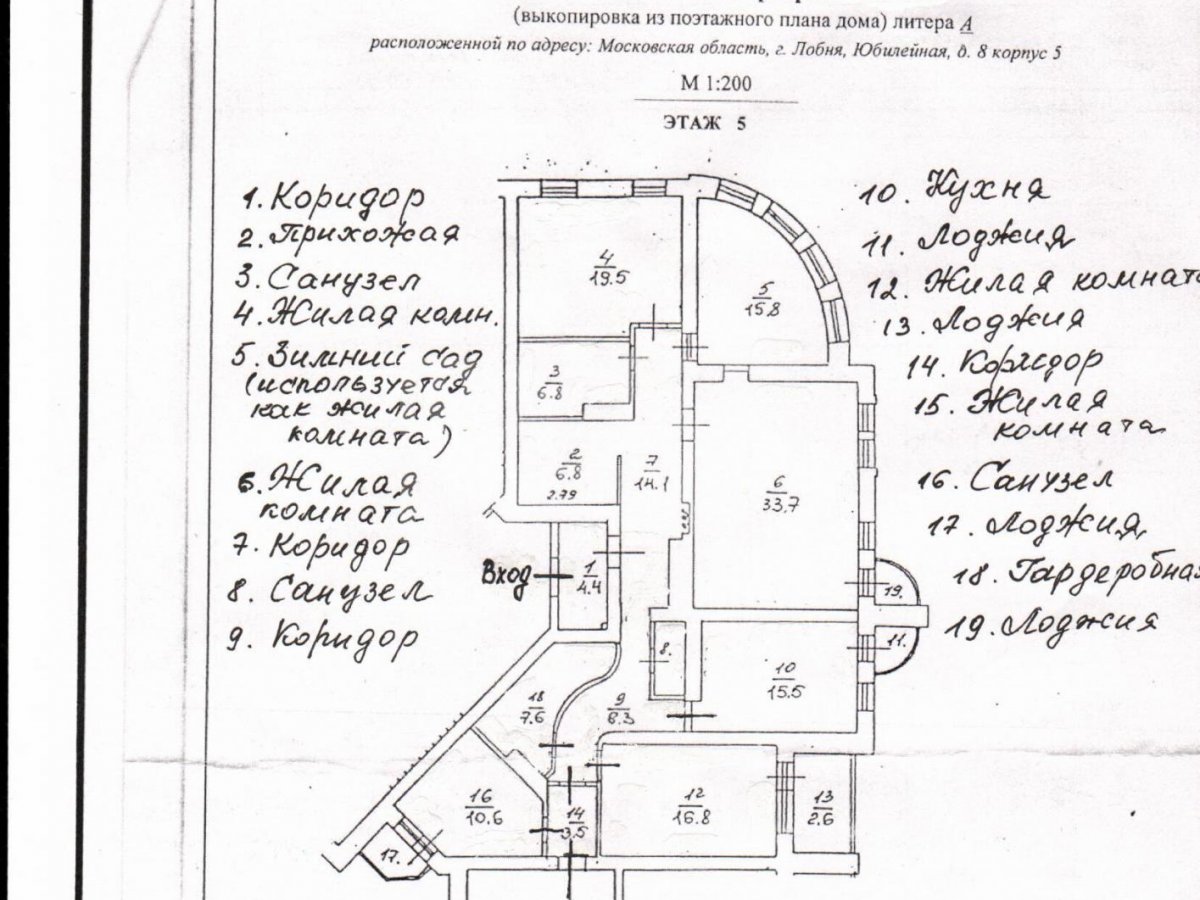 (выкопировка из поэтажного плана дома) литера А
расположенной по адресу: Московская область, г. Лобня, Юбилейная, д. 8 корпус 5
М 1:200
ЭТАЖ 5
1. Коридор
2. Прихожая
3. Санузел
4. Жилая комн.
5. Зимний сад
(используется
как жилая
комната)
6. Жилая
комната
7. Коридор
8. Санузел
9. Коридор
10. Кухня
11. Лоджия
12. Жилая комната
13. Лоджия
14. Коридор
15. Жилая
комната
16. Санузел
17. Лоджия
18. Гардеробная
19. Лоджия
4
19.5
5
15.8
3
6.8
2
6.8
2.79
7
14.1
6
33.7
Вход
1
4.4
19.
11.
8.
10
15.5
18
7.6
9
8.3
16
10.6
14
3.5
12
16.8
13
2.6
17.